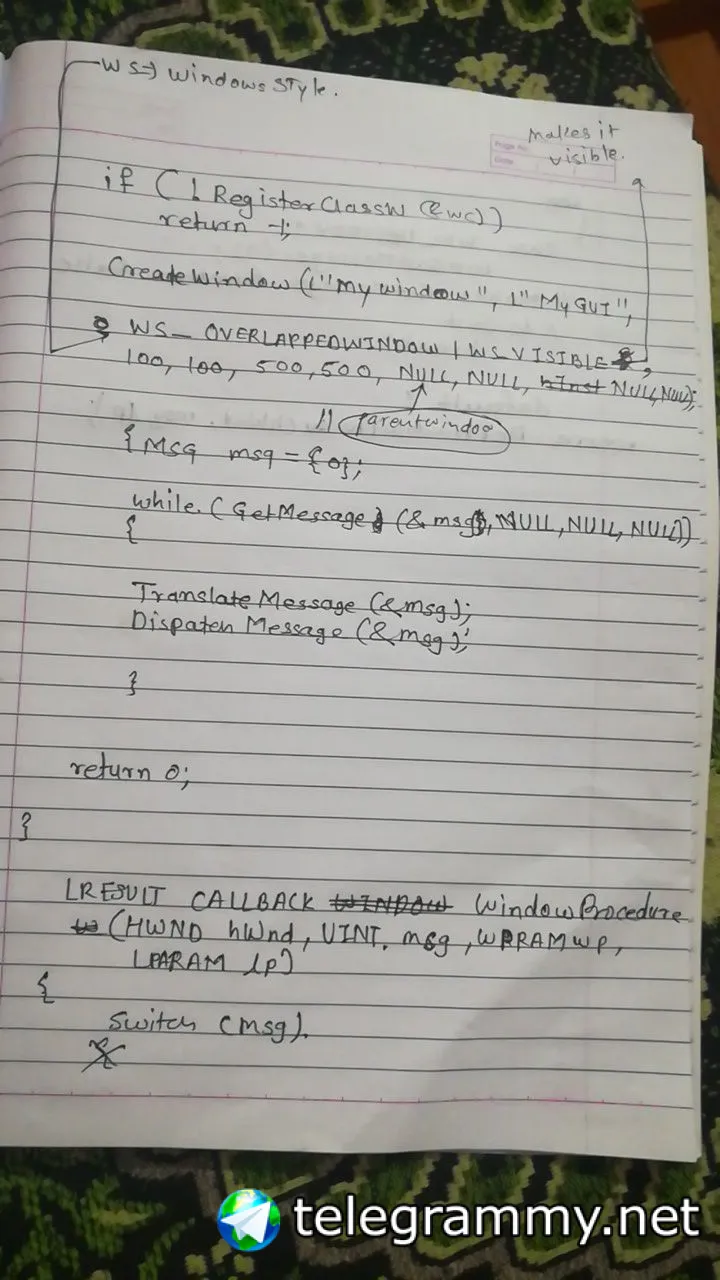 WS→ windows style.
makes it
visible.
Page No.
Date
if ( ! RegisterClassW (&wc))
return -1;
CreateWindow (L"my window", L"My GUI",
WS_ OVERLAPPEDWINDOW | WS VISIBLE ,
100, 100, 500, 500, NULL, NULL, hInst NULL, NULL);
// parentwindow
{ MSG msg = {0};
while. ( GetMessage (&msg, NULL, NULL, NULL))
{
Translate Message (&msg);
Dispatch Message (&msg);
}
return 0;
}
LRESULT CALLBACK WINDOW WindowProcedure
w (HWND hWnd, UINT. msg, WPRAM wp,
LPARAM lp)
{
Switch (msg).
telegrammy.net